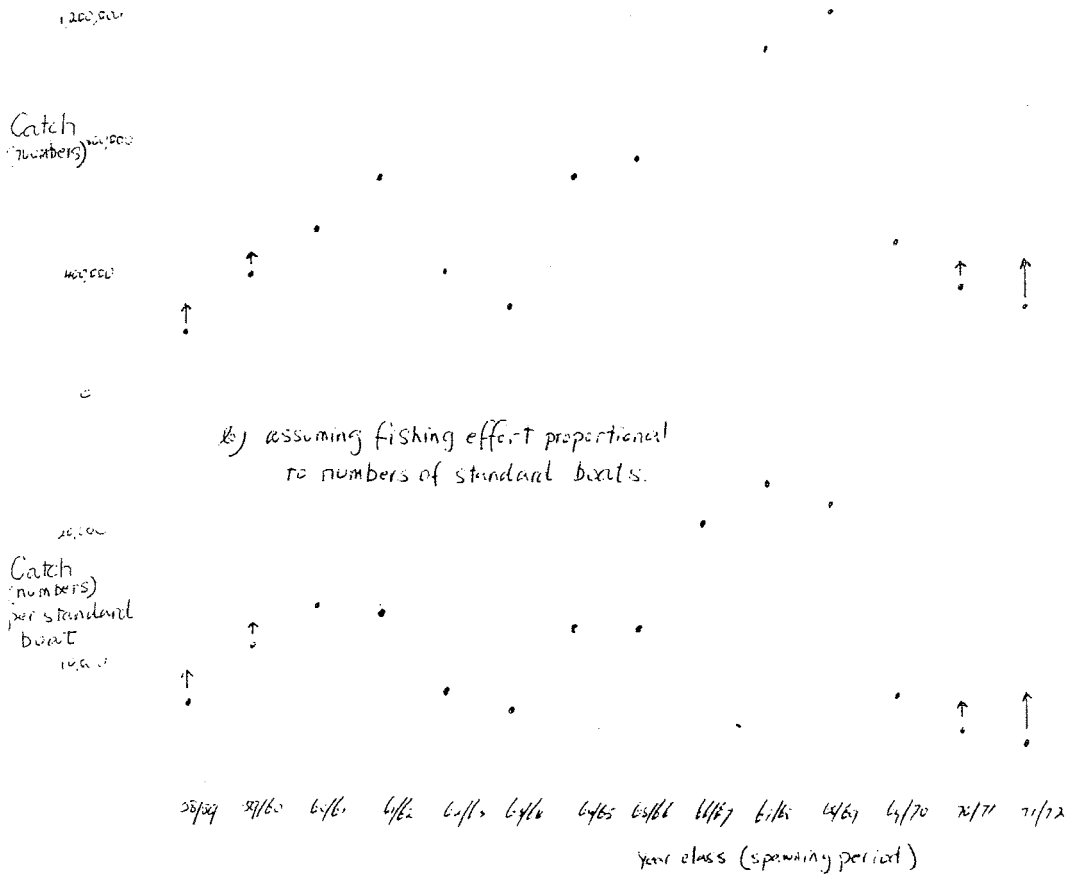 1,200,000
Catch
(numbers)
400,000
0
b) assuming fishing effort proportional
to numbers of standard boats.
Catch
(numbers)
per standard
boat
58/59 59/60 60/61 61/62 62/63 64/65 65/66 66/67 67/68 68/69 69/70 70/71 71/72
year class (spawning period)